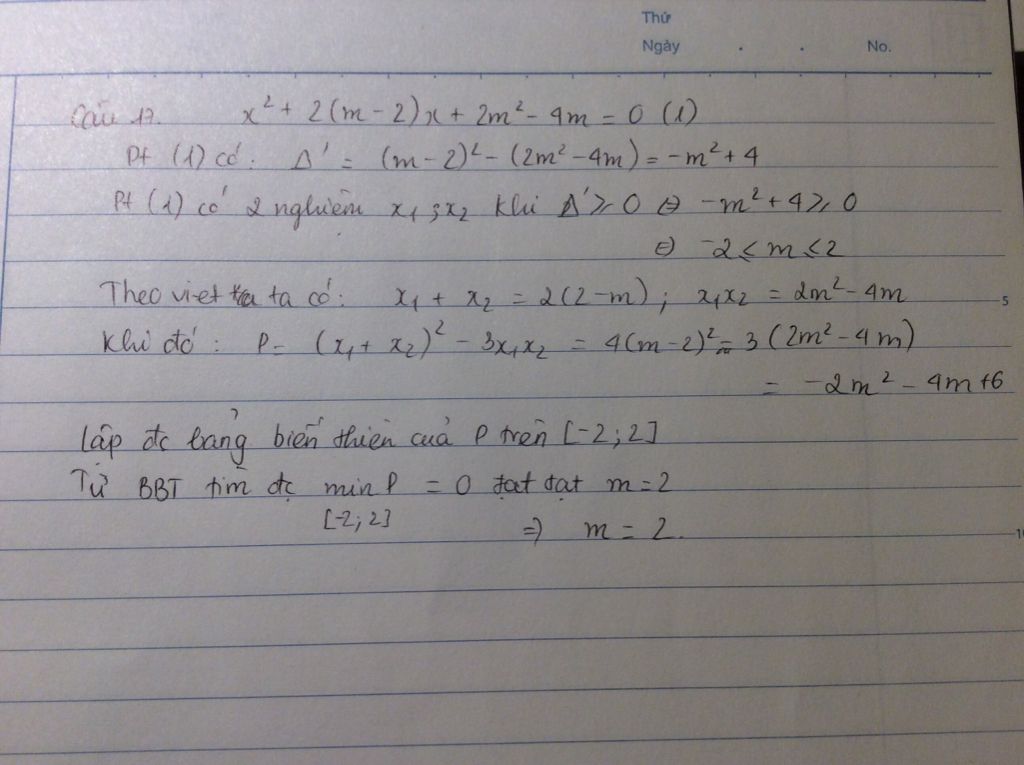 Thứ
Ngày . . No.
Câu 17. x² + 2(m - 2)x + 2m² - 4m = 0 (1)
Pt (1) có: Δ' = (m - 2)² - (2m² - 4m) = -m² + 4
Pt (1) có 2 nghiệm x₁; x₂ khi Δ' ≥ 0 ⇔ -m² + 4 ≥ 0
⇔ -2 ≤ m ≤ 2
Theo vi-et ta có: x₁ + x₂ = 2(2 - m); x₁x₂ = 2m² - 4m
5
Khi đó: P = (x₁ + x₂)² - 3x₁x₂ = 4(m - 2)² - 3(2m² - 4m)
= -2m² - 4m + 6
Lập đc bảng biến thiên của P trên [-2; 2]
Từ BBT tìm đc min P = 0 đạt đạt m = 2
[-2; 2]
⇒ m = 2.
10